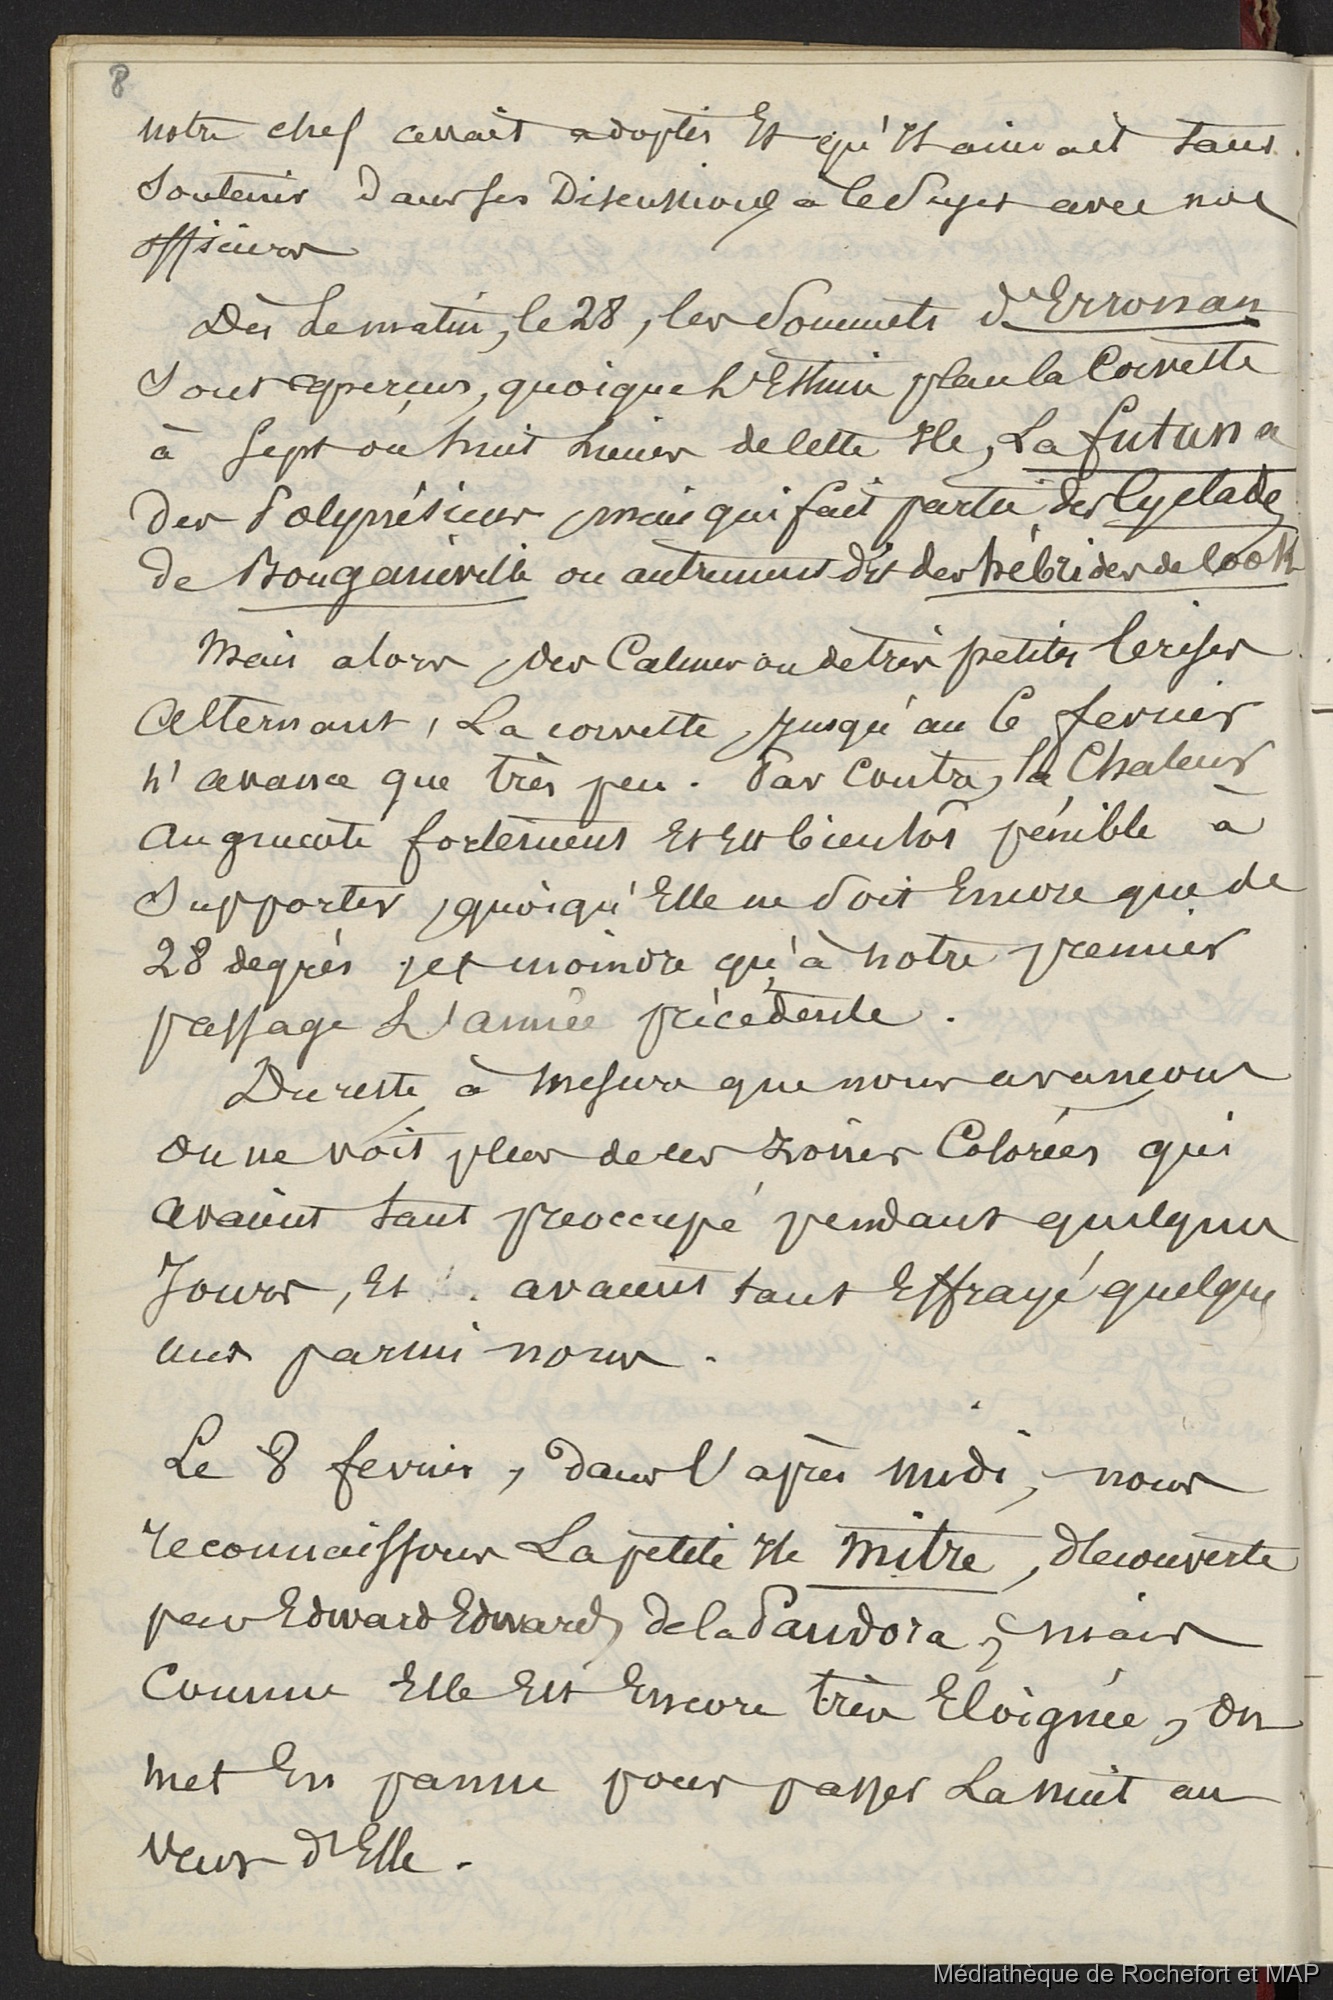 8
notre chef avait adoptés Et qu'Il aimait tant
Soutenir dans ses Discussions à ce Sujet avec nos
officiers
Dès Le matin, le 28, les Sommets d'Erronan
Sont aperçus, quoique L'Estime place la Corvette
à Sept ou huit Lieues de cette Ile, La futuna
des Polynésiens, mais qui fait partie des Cyclades
de Bougainville ou autrement dit des hébrides de Cook
Mais alors, des Calmes ou de très petites brises
Alternant, La corvette, Jusqu'au 6 fevrier
n'avance que très peu. Par contre, la Chaleur
Augmente fortement Et Est bientôt pénible à
Supporter, quoiqu'Elle ne Soit Encore que de
28 degrés, et moindre qu'à notre premier
passage L'année précédente.
Du reste, à Mesure que nous avançons
on ne voit plus de ces zônes Colorées qui
avaient tant preoccupé pendant quelques
Jours, Et avaient tant Effrayé quelques
uns parmi nous.
Le 8 fevrier, dans l'après midi, nous
reconnaissons La petite Ile Mitre, découverte
par Edward Edwards de la Pandora, mais
Comme Elle Est Encore très Eloignée, on
met En panne pour passer La nuit au
vent d'Elle.
Médiathèque de Rochefort et MAP